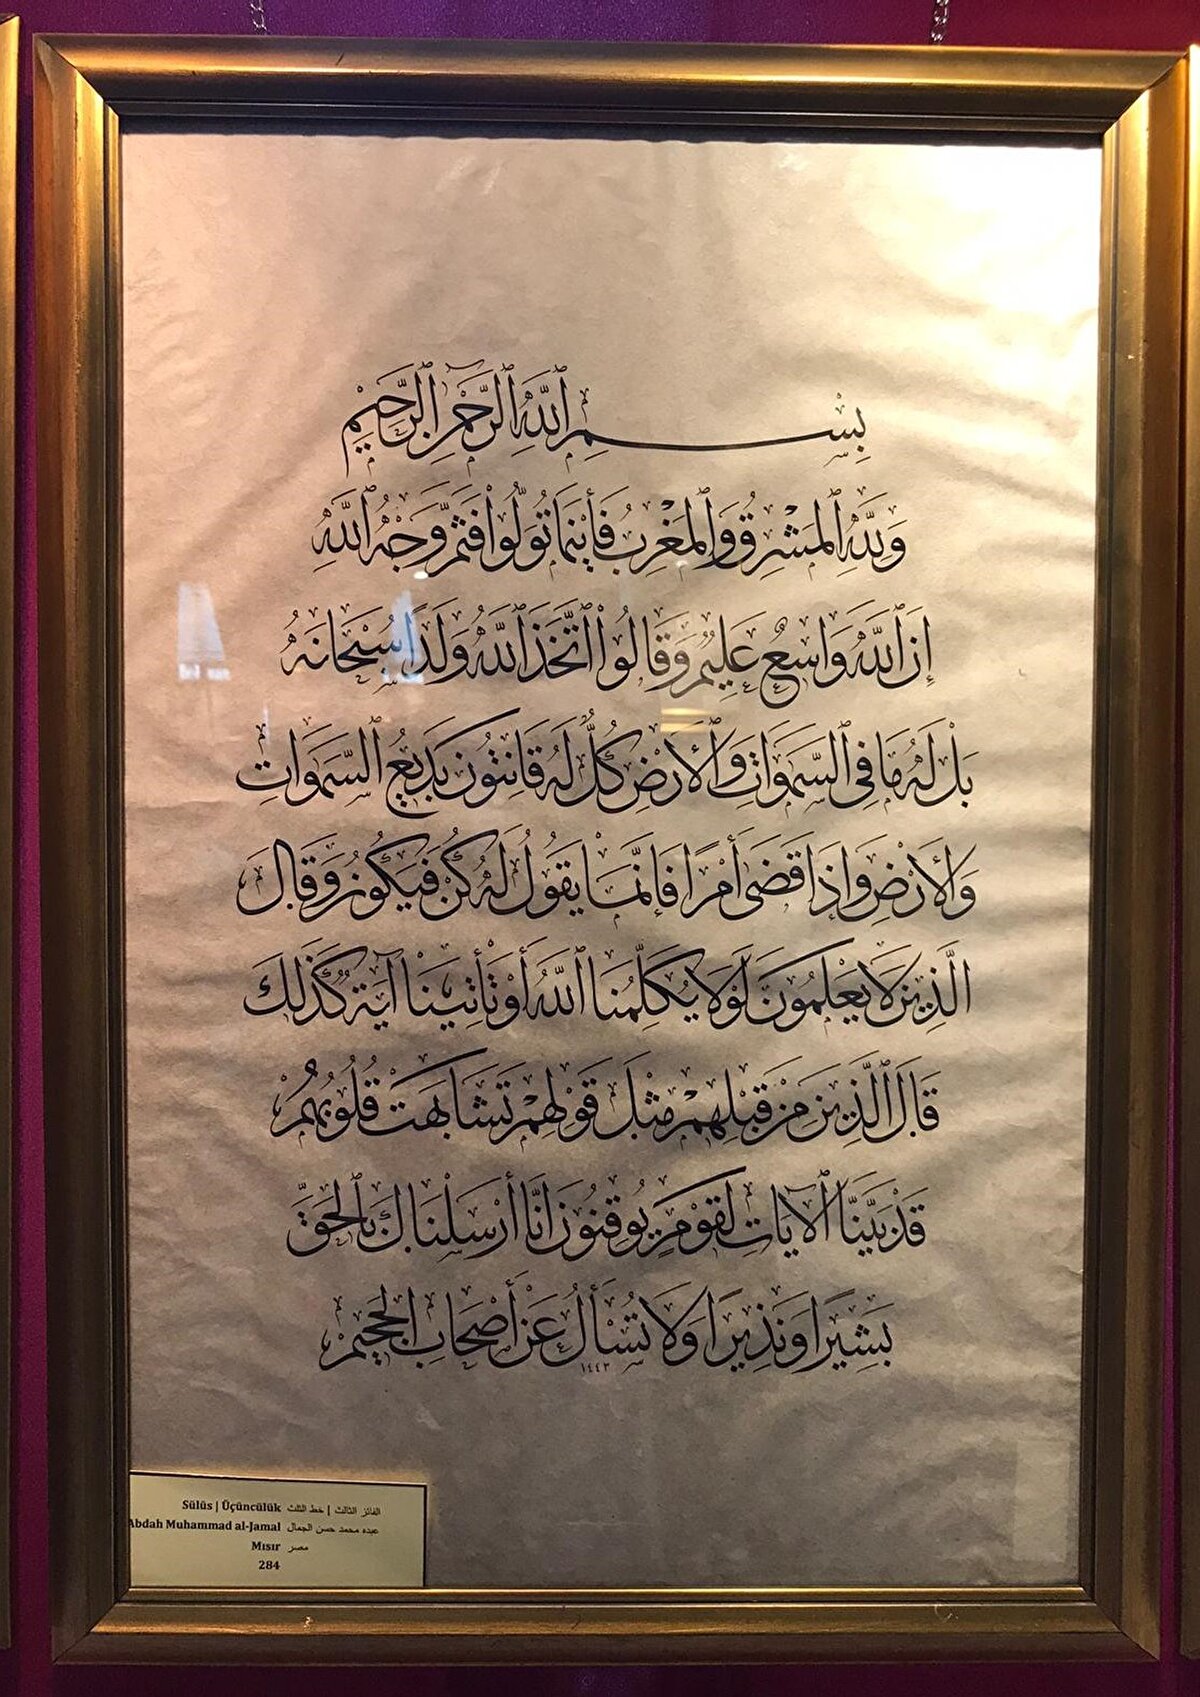 بِسْمِ ٱللَّهِ ٱلرَّحْمٰنِ ٱلرَّحِيمِ
وَلِلَّهِ ٱلْمَشْرِقُ وَٱلْمَغْرِبُ فَأَيْنَمَا تُوَلُّوا فَثَمَّ وَجْهُ ٱللَّهِ
إِنَّ ٱللَّهَ وَاسِعٌ عَلِيمٌ وَقَالُوا ٱتَّخَذَ ٱللَّهُ وَلَدًا سُبْحَانَهُ
بَلْ لَهُ مَا فِي ٱلسَّمَوَاتِ وَٱلْأَرْضِ كُلٌّ لَهُ قَانِتُونَ بَدِيعُ ٱلسَّمَوَاتِ
وَٱلْأَرْضِ وَإِذَا قَضَى أَمْرًا فَإِنَّمَا يَقُولُ لَهُ كُنْ فَيَكُونُ وَقَالَ
ٱلَّذِينَ لَا يَعْلَمُونَ لَوْلَا يُكَلِّمُنَا ٱللَّهُ أَوْ تَأْتِينَا آيَةٌ كَذَلِكَ
قَالَ ٱلَّذِينَ مِنْ قَبْلِهِمْ مِثْلَ قَوْلِهِمْ تَشَابَهَتْ قُلُوبُهُمْ
قَدْ بَيَّنَّا ٱلْآيَاتِ لِقَوْمٍ يُوقِنُونَ إِنَّا أَرْسَلْنَاكَ بِٱلْحَقِّ
بَشِيرًا وَنَذِيرًا وَلَا تُسْأَلُ عَنْ أَصْحَابِ ٱلْجَحِيمِ
١٤٤٣
Sülüs | Üçüncülük الفائز الثالث | خط الثلث
Abdah Muhammad al-Jamal عبده محمد حسن الجمال
Mısır مصر
284